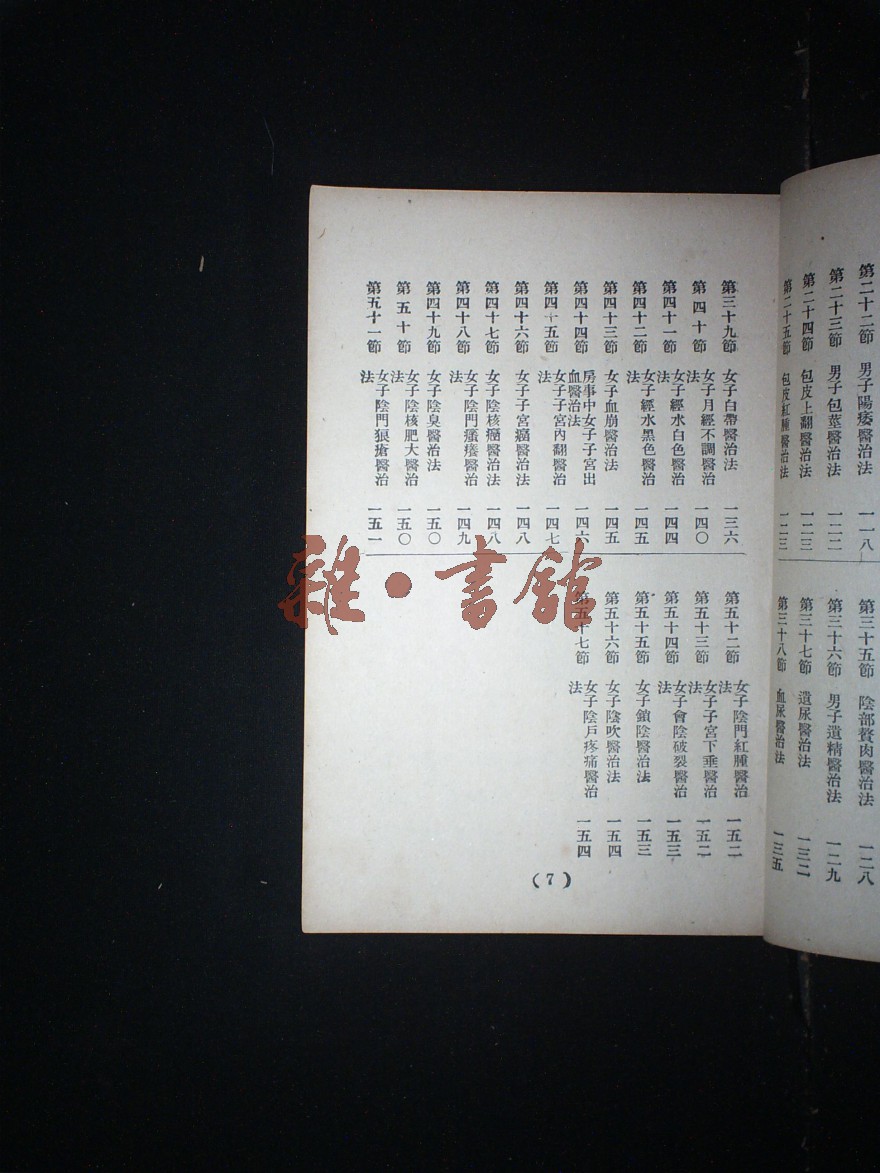 第二十二節　男子陽痿醫治法　一一八
第二十三節　男子包莖醫治法　一二二
第二十四節　包皮上翻醫治法　一二三
第二十五節　包皮紅腫醫治法　一二三
第三十五節　陰部贅肉醫治法　一二八
第三十六節　男子遺精醫治法　一二九
第三十七節　遺尿醫治法　一三二
第三十八節　血尿醫治法　一三五
第三十九節　女子白帶醫治法　一三六
第四十節　女子月經不調醫治法　一四〇
第四十一節　女子經水白色醫治法　一四四
第四十二節　女子經水黑色醫治法　一四五
第四十三節　女子血崩醫治法　一四五
第四十四節　房事中女子子宮出血醫治法　一四六
第四十五節　女子子宮內翻醫治法　一四七
第四十六節　女子子宮癌醫治法　一四八
第四十七節　女子陰核癌醫治法　一四八
第四十八節　女子陰門瘙癢醫治法　一四九
第四十九節　女子陰臭醫治法　一五〇
第五十節　女子陰核肥大醫治法　一五〇
第五十一節　女子陰門狼瘡醫治法　一五一
第五十二節　女子陰門紅腫醫治法　一五二
第五十三節　女子子宮下垂醫治法　一五二
第五十四節　女子會陰破裂醫治法　一五三
第五十五節　女子鎖陰醫治法　一五三
第五十六節　女子陰吹醫治法　一五四
第五十七節　女子陰戶疼痛醫治法　一五四
（7）
雜·書館